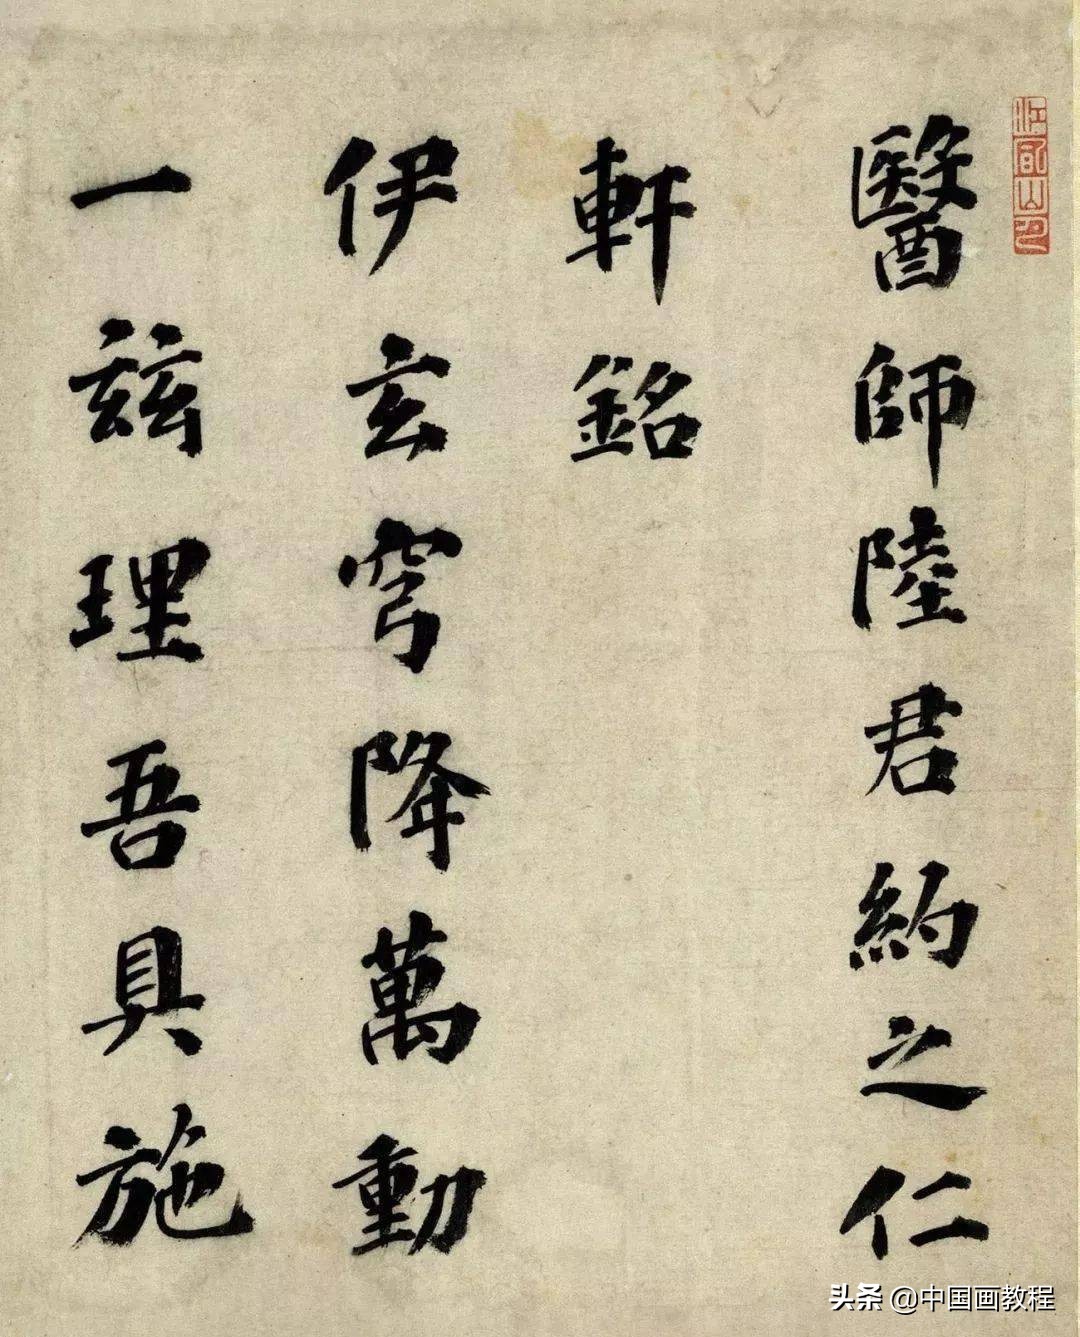 醫師陸君約之仁
軒銘
伊玄穹降萬動
一茲理吾具施
头条 @中国画教程